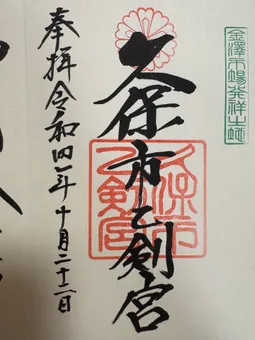 金澤市場発祥之地
久保市乙剣宮
久保市乙剣宮
奉拝 令和四年十月二十二日